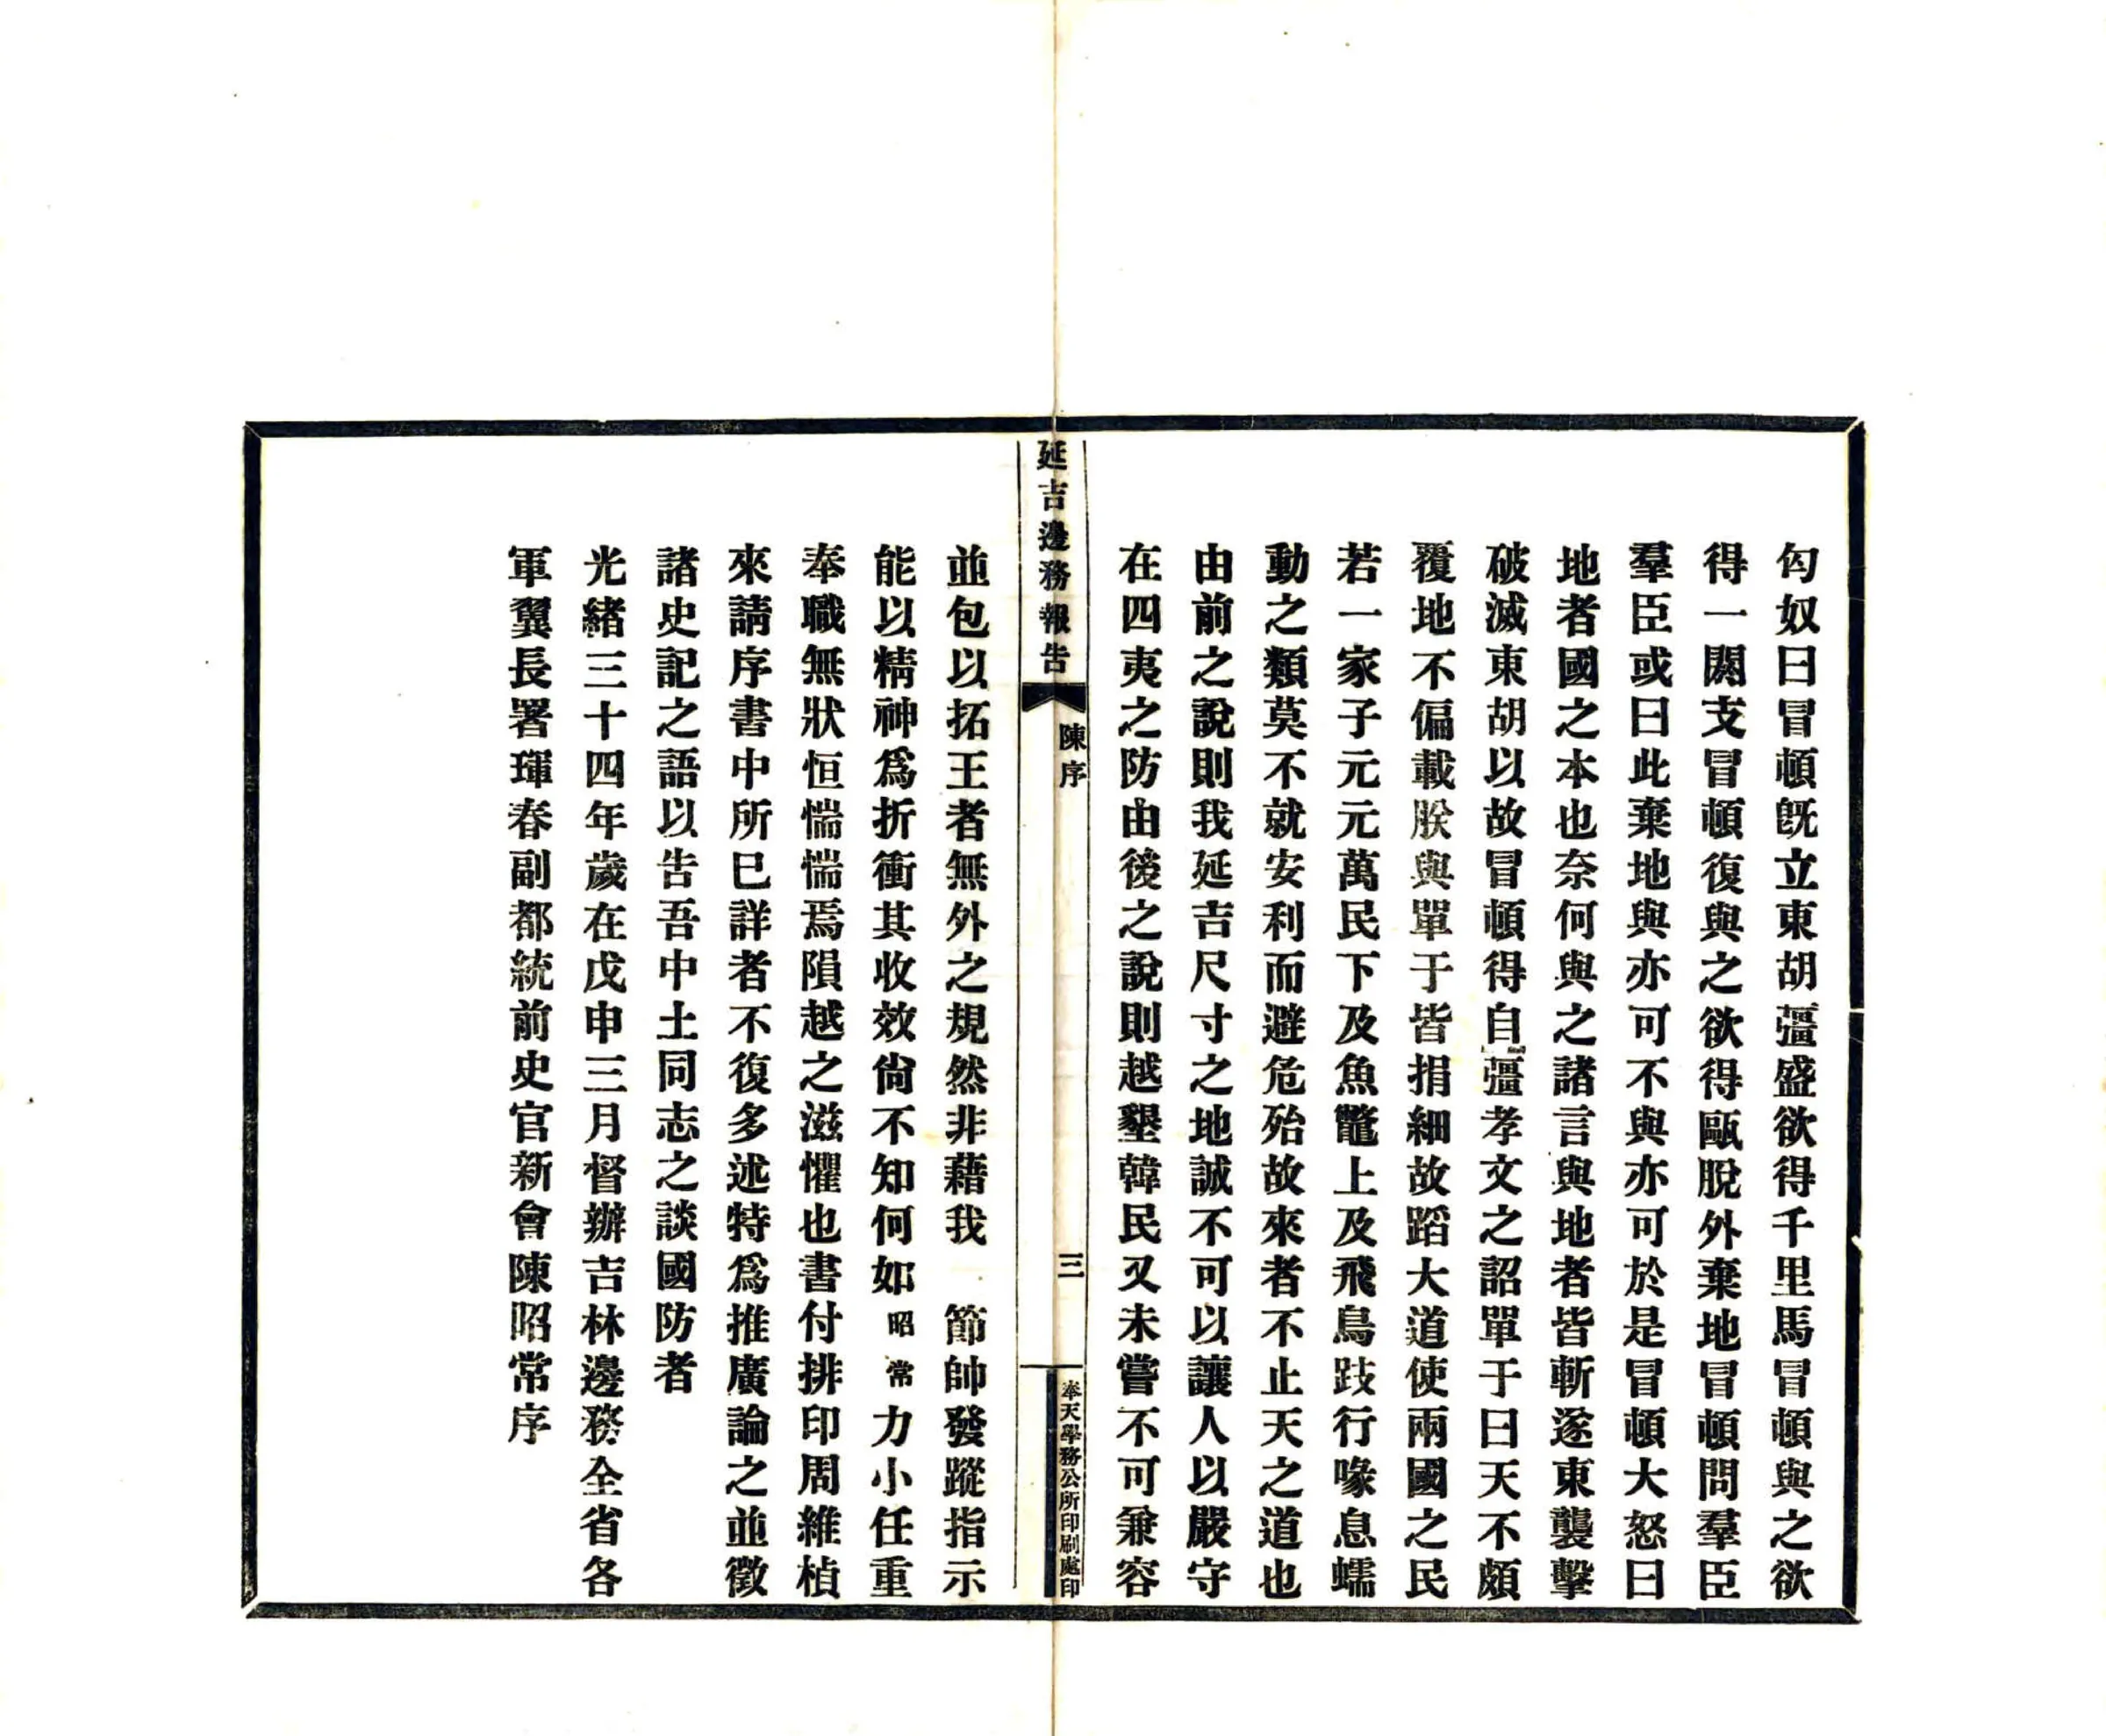 匈奴曰冒頓旣立東胡彊盛欲得千里馬冒頓與之欲
得一閼支冒頓復與之欲得甌脫外棄地冒頓問羣臣
羣臣或曰此棄地與亦可不與亦可於是冒頓大怒曰
地者國之本也奈何與之諸言與地者皆斬遂東襲擊
破滅東胡以故冒頓得自彊孝文之詔單于曰天不頗
覆地不偏載朕與單于皆捐細故蹈大道使兩國之民
若一家子元元萬民下及魚鼈上及飛鳥跂行喙息蠕
動之類莫不就安利而避危殆故來者不止天之道也
由前之說則我延吉尺寸之地誠不可以讓人以嚴守
在四夷之防由後之說則越墾韓民又未嘗不可兼容
延吉邊務報告
陳序
三
奉天學務公所印刷處印
並包以拓王者無外之規然非藉我　節帥發蹤指示
能以精神爲折衝其收效尙不知何如昭常力小任重
奉職無狀恒惴惴焉隕越之滋懼也書付排印周維楨
來請序書中所巳詳者不復多述特爲推廣論之並徵
諸史記之語以告吾中土同志之談國防者
光緒三十四年歲在戊申三月督辦吉林邊務全省各
軍翼長署琿春副都統前史官新會陳昭常序